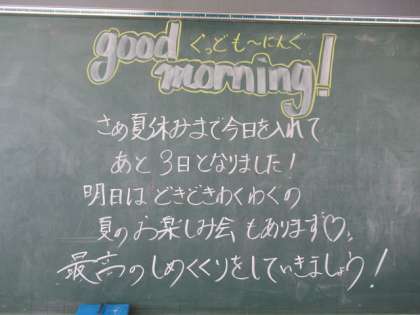 good
ぐっども〜にんぐ
morning!
さぁ夏休みまで今日を入れて
あと3日となりました!
明日はどきどきわくわくの
夏のお楽しみ会もあります♡。
最高のしめくくりをしていきましょう!